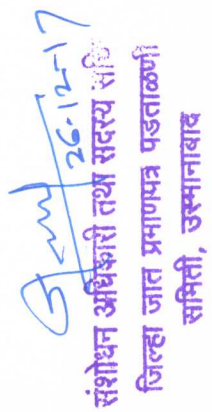 26-12-17
संशोधन अधिकारी तथा सदस्य
जिल्हा जात प्रमाणपत्र पडताळणी
समिती, उस्मानाबाद